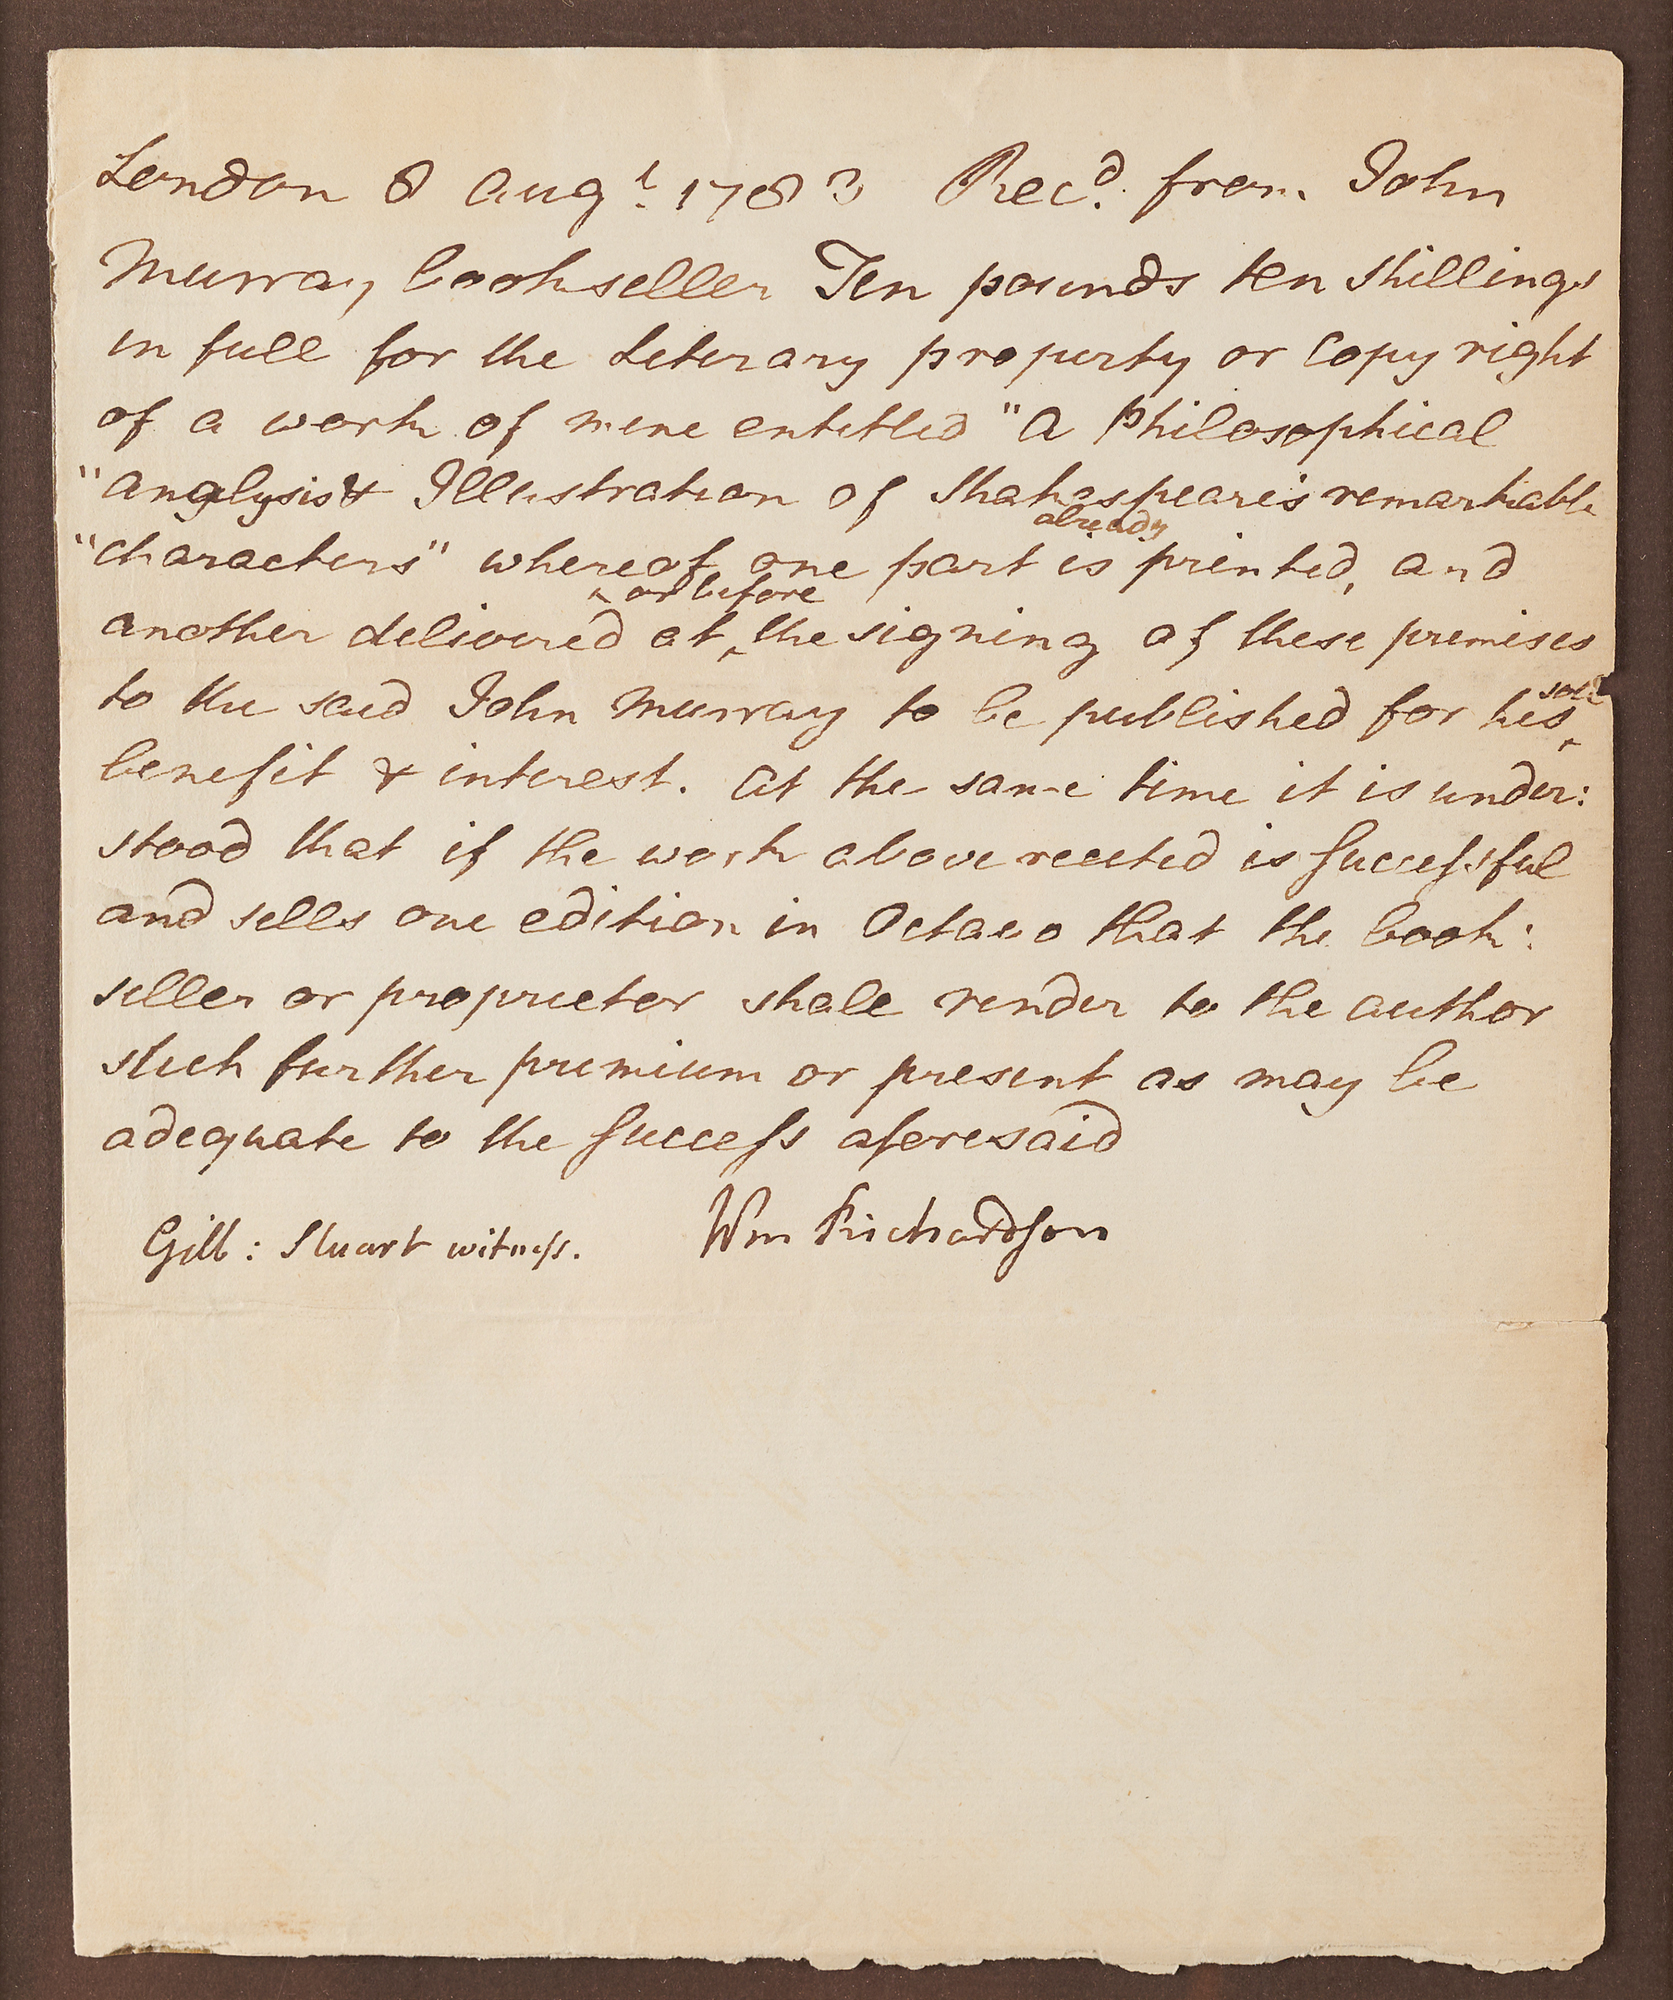 London 8 Augt. 1783 Recd. from John
Murray bookseller Ten pounds ten shillings
in full for the Literary property or Copy right
of a work of mine entitled "A Philosophical
"Analysis & Illustration of Shakespeare's remarkable
already
"characters" whereof one part is printed, and
^ or before
another delivered at ^ the signing of these premises
sole
to the said John Murray to be published for his ^
benefit & interest. At the same time it is under:
stood that if the work above recited is Successful
and sells one edition in Octavo that the book:
seller or proprietor shall render to the author
such further premium or present as may be
adequate to the Success aforesaid
Gilb: Stuart witness. Wm Richardson